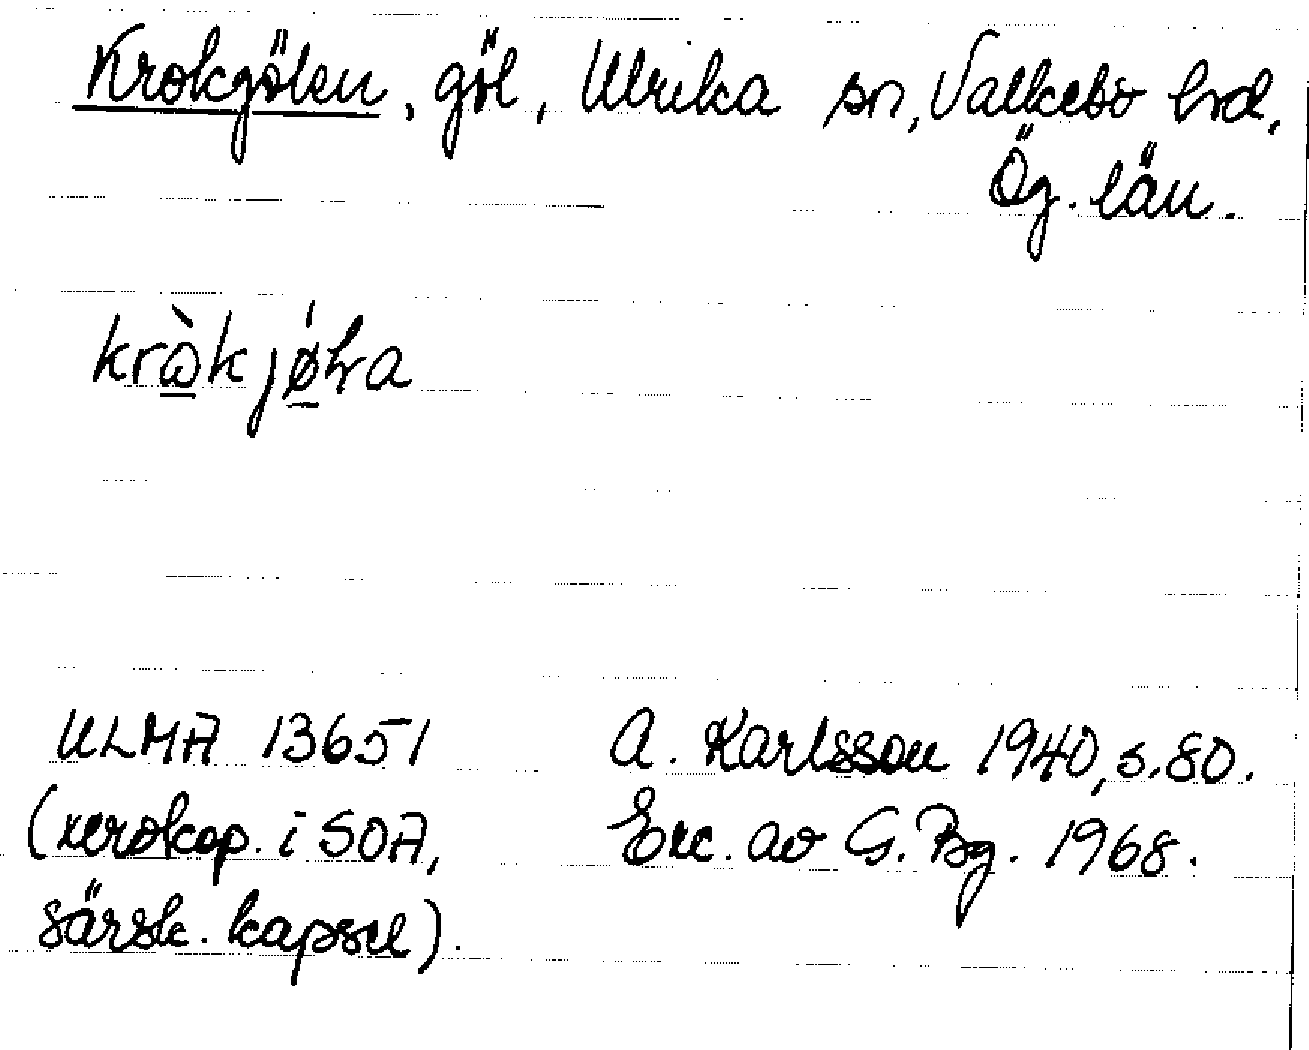 Krokgölen, göl, Ulrika sn, Valkebo hrd,
Ög. län.
krὼ̱kjǿ̱ɬra
ULMA 13651
(xerokop. i SOA,
särsk. kapsel).
A. Karlsson 1940, s. 80.
Exc. av G. Bg. 1968.